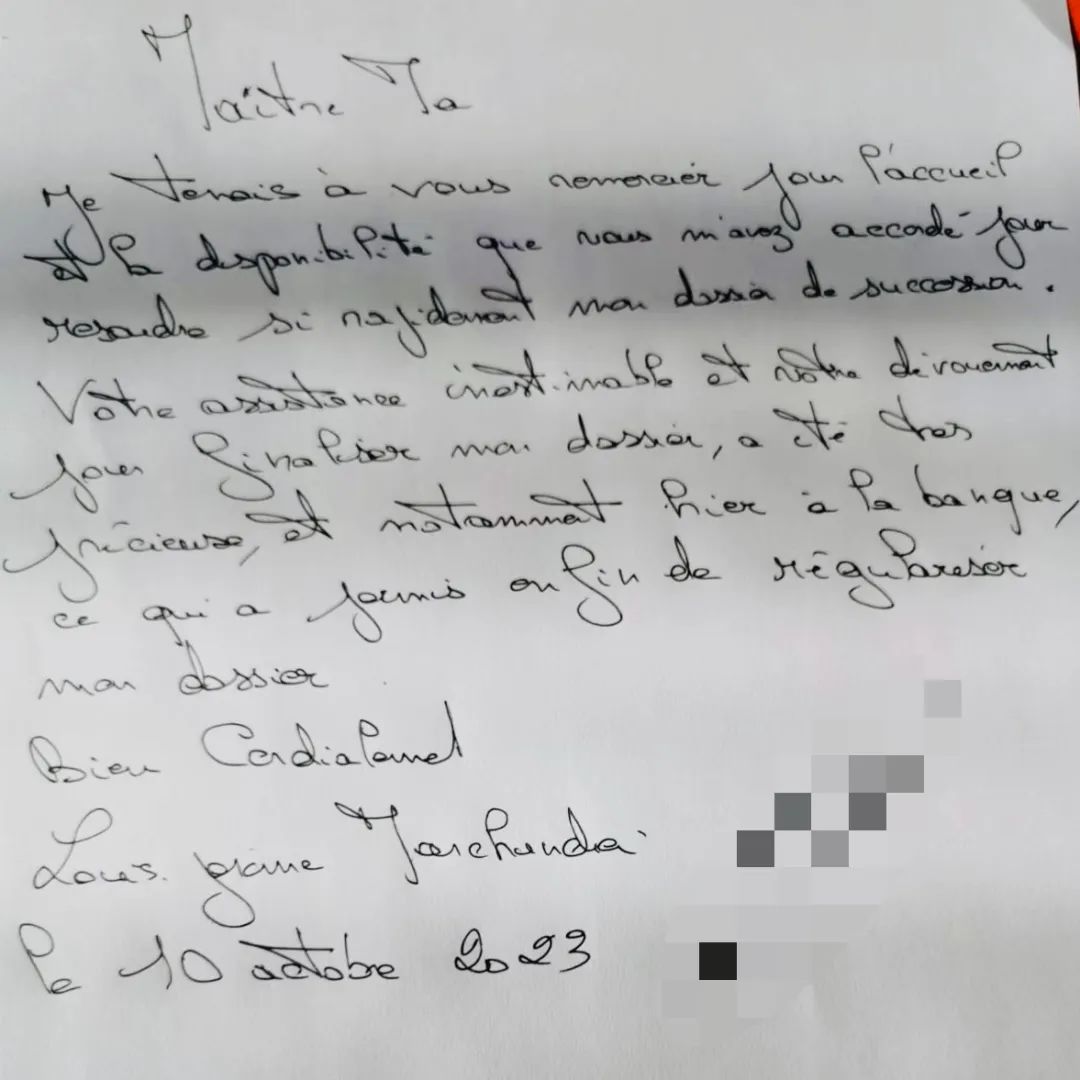 Maître Ma
Je tenais à vous remercier pour l'accueil
et la disponibilité que vous m'avez accordé pour
resoudre si rapidement mon dossier de succession.
Votre assistance inestimable et votre dévouement
pour finaliser mon dossier, a été tres
précieuse, et notamment hier à la banque,
ce qui a permis enfin de régulareser
mon dossier
Bien Cordialement
Louis. Marchandai
le 10 octobre 2023